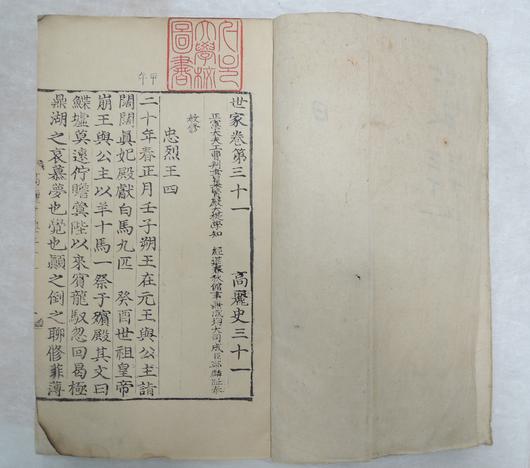 世家卷第三十一 高麗史三十一
正憲大夫工曹判書集賢殿大提學知 經筵春秋館事兼成均大司成臣鄭麟趾奉
教修
忠烈王四
甲午
二十年春正月壬子朔王在元王與公主詣
闊闊眞妃殿獻白馬九匹 癸酉世祖皇帝
崩王與公主以羊十馬一祭于殯殿其文曰
鰈墟莫遠佇瞻蓂陛以來賓龍馭忽回曷極
鼎湖之哀慕夢也覺也顚之倒之聊修菲薄